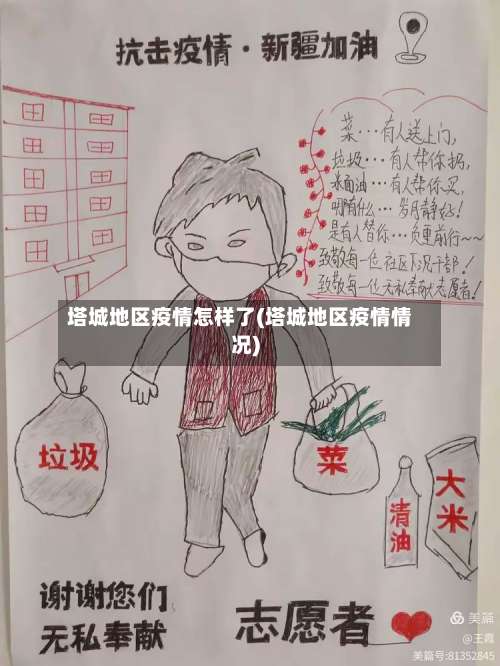 抗击疫情·新疆加油
菜…有人送上门,
垃圾…有人帮你扔,
米面油…有人帮你买,
哪有什么…岁月静好!
是有人替你…负重前行~~
致敬每一位社区下沉干部!
致敬每一位无私奉献志愿者!
塔城地区疫情怎样了(塔城地区疫情情
况)
垃圾
菜
清油
大米
谢谢您们,
无私奉献
志愿者
美篇
@王霞
美篇号:81352845